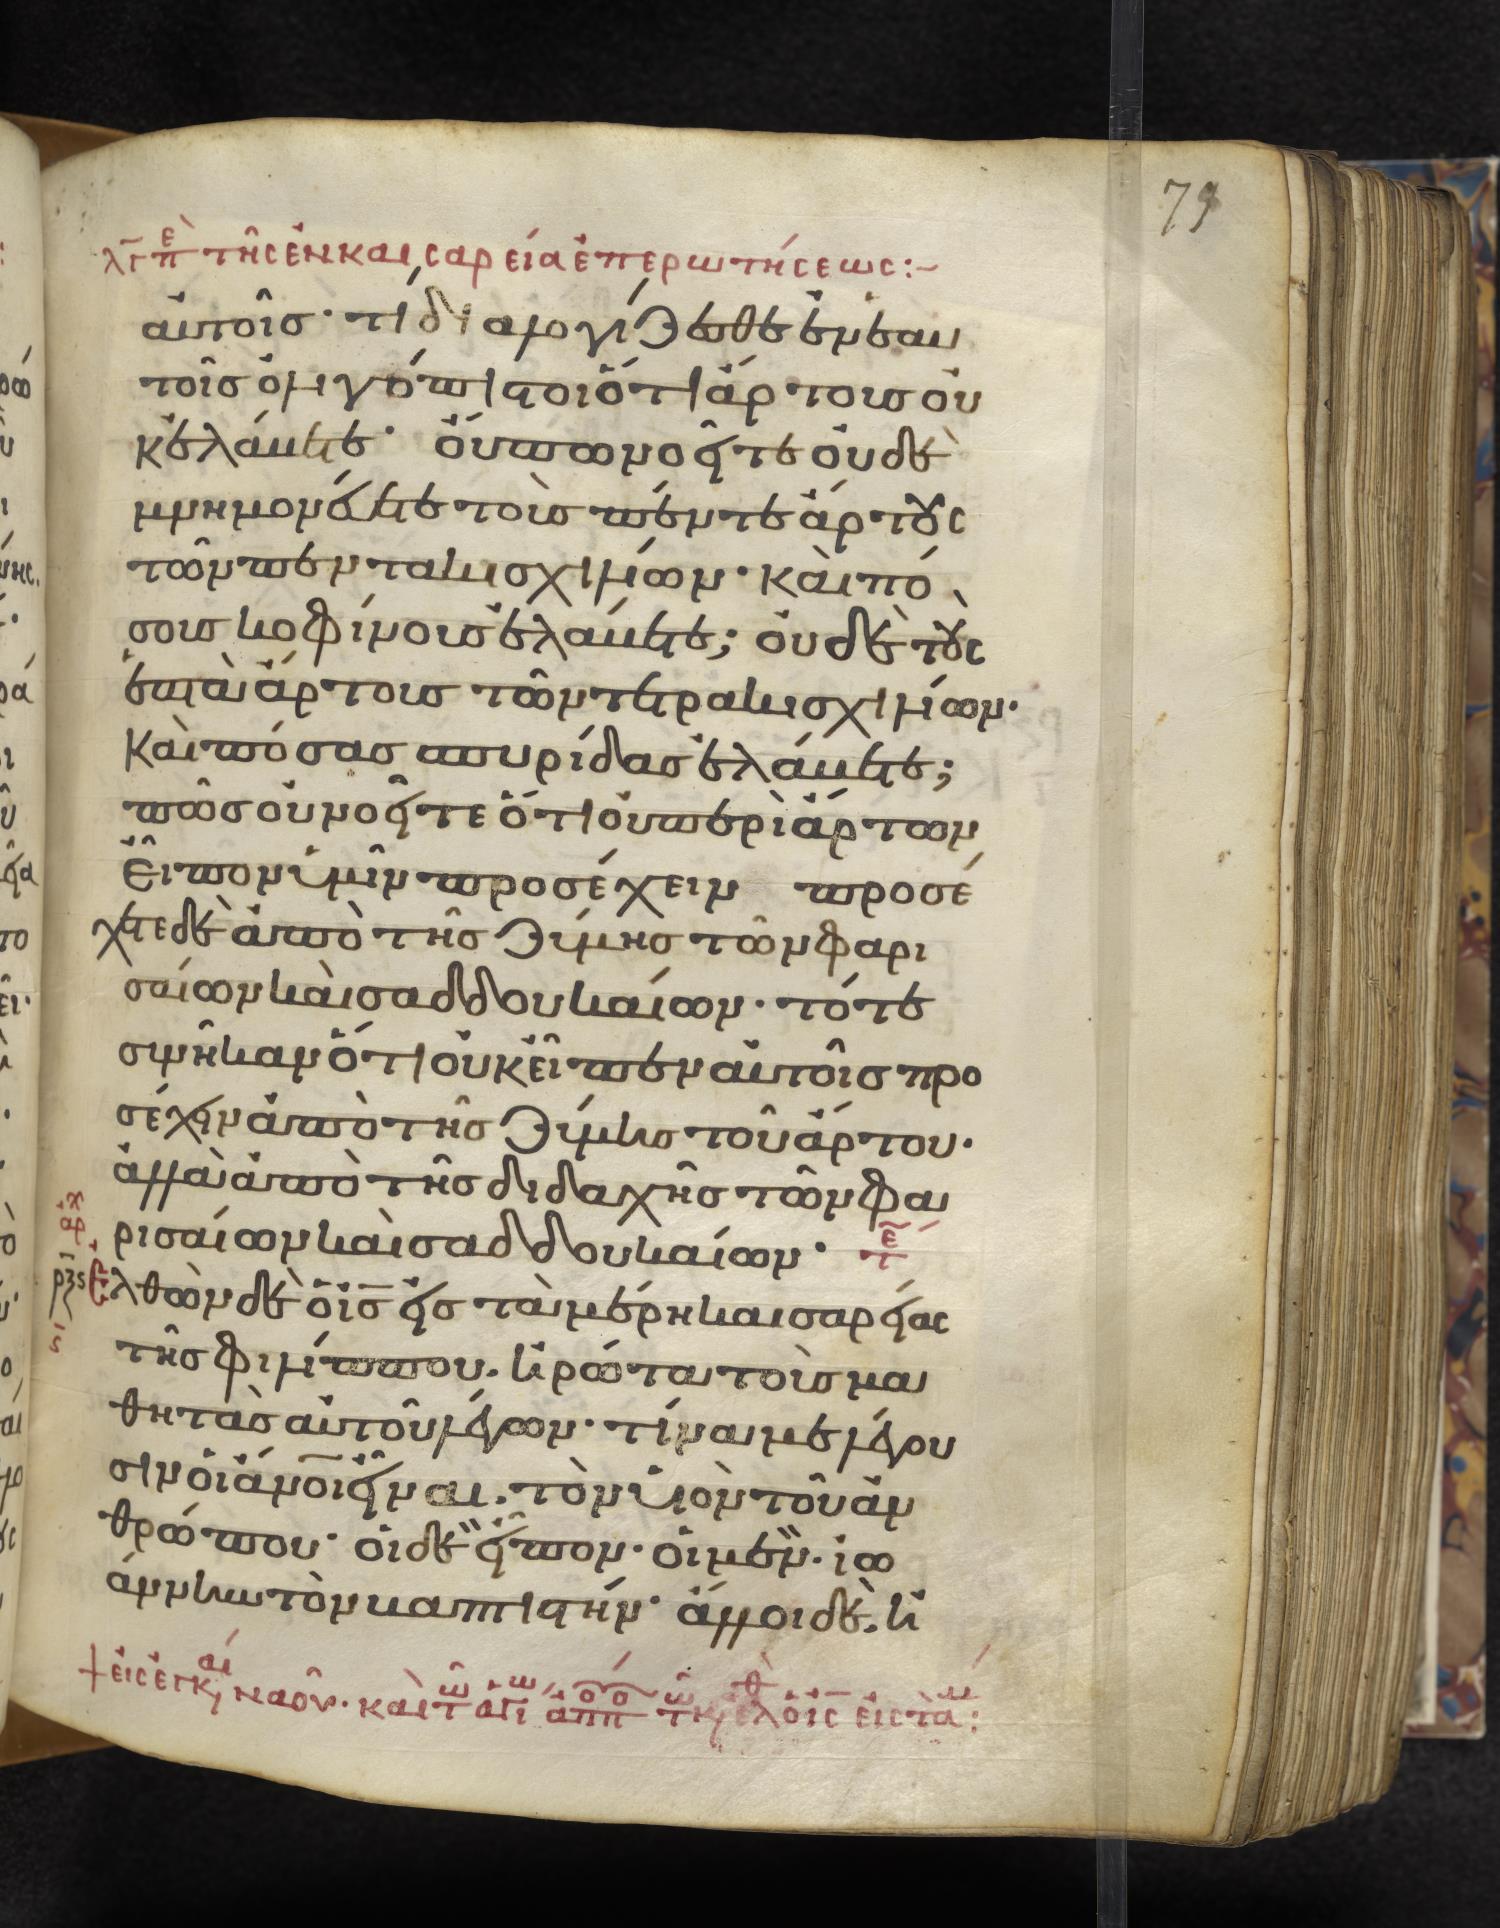 79
λγ πε τῆς ἐν και σαρεία ἐπερωτήσεως:~
αὐτοῖσ· τί διαλογίζεσθε ἐν ἑαυ
τοῖσ ὀλιγόπιστοι ὅτι ἄρτουσ οὐ
κ ἐλάβετε· οὔπω νοεῖτε οὐδὲ
μνημονέυετε τοὺσ πέντε ἄρτους
τῶν πεντακισχιλίων· καὶ πό
σουσ κοφίνουσ ἐλάβετε; οὐδὲ τοὺς
ἑπτὰ ἄρτουσ τῶν τετρακισχιλίων·
καὶ πόσασ σπυρίδασ ἐλάβετε;
πῶσ οὐ νοεῖτε ὅτι οὐ περὶ ἄρτων
εἶπον ὑμῖν προσέχειν προσέ
χετε δὲ ἀπὸ τῆσ ζύμησ τῶν φαρι
σαίων καὶ σαδδουκαίων· τότε
συνῆκαν ὅτι οὐκ εἶπεν αὐτοῖσ προ
σέχειν ἀπὸ τῆσ ζύμησ τοῦ ἄρτου·
ἀλλὰ ἀπὸ τῆσ διδαχῆσ τῶν φα
ρισαίων καὶ σαδδουκαίων· τε
ρξς ἐλθὼν δὲ ὁ ισ εἰσ τὰ μέρη καισαρείας
τῆσ φιλίππου· ἠρώτα τοὺσ μα
θητὰσ αὐτοῦ λέγων· τίνα με λέγου
σιν οἱ ανοι εἶναι· τὸν υἱὸν τοῦ ἀν
θρώπου· οἱ δὲ εἶπον· οἱ μὲν· ἰω
άννην τὸν βαπτιστήν· ἄλλοι δὲ· ἠ